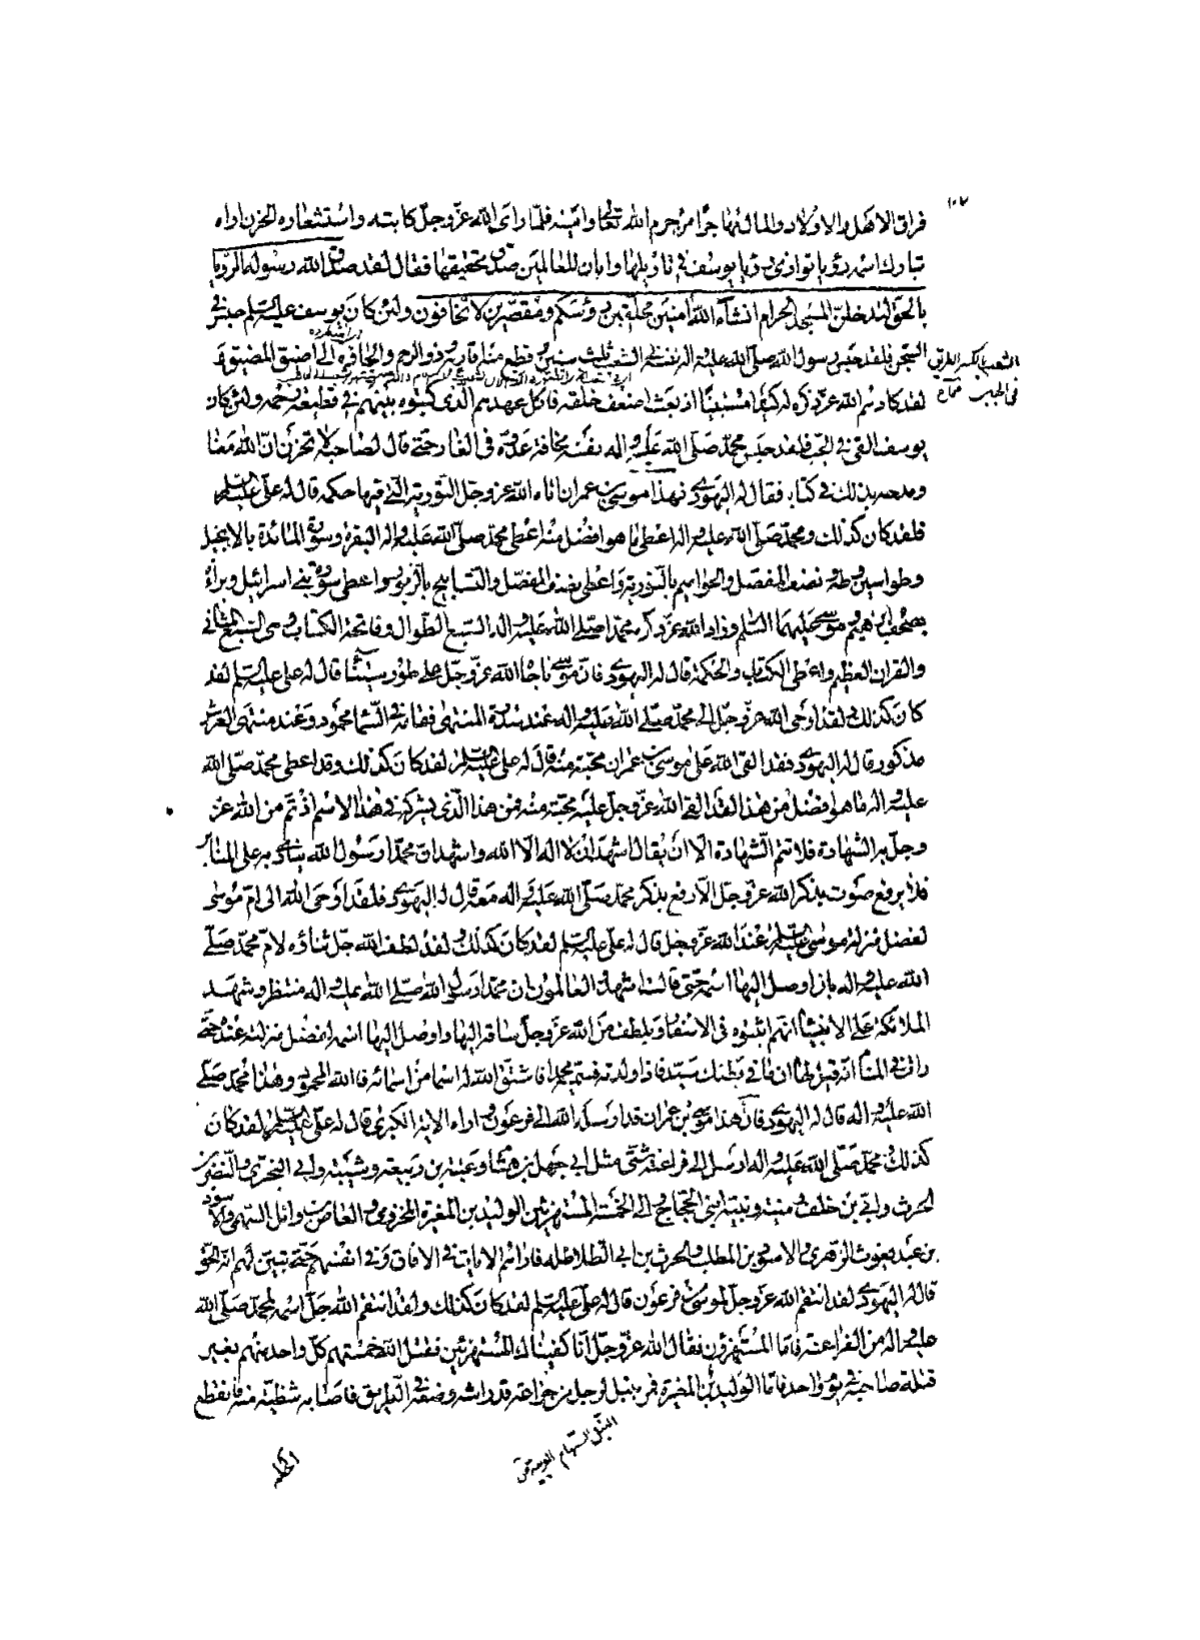 ١٠٧
فراق الاهل والاولاد والمال مهاجرا من حرم الله تعالى وامنه فلما راى الله عز وجل كابته واستشعاره الحزن اراه
تبارك اسمه رؤيا توازى رؤيا يوسف في تاويلها وابان للعالمين صدق تحقيقها فقال لقد صدق الله رسوله الرؤيا
بالحق لتدخلن المسجد الحرام انشاء الله امنين محلقين رؤسكم ومقصرين لا تخافون ولئن كان يوسف عليه السلم حبس في
السجن فلقد حبس رسول الله صلى الله عليه واله نفسه في الشعب ثلث سنين وقطع منه اقاربه وذوا الرحم والجاؤه الى اضيق المضيق و
الشعب بالكسر الطريق
في الجبل
لقد كادهم الله عز ذكره له كيدا مستبينا اذ بعث اضعف خلقه فاكل عهدهم الذى كتبوه بينهم في قطيعة رحمه ولئن كان
يوسف القى في الجب فلقد حبس محمد صلى الله عليه واله نفسه مخافة عدوه في الغار حتى قال لصاحبه لا تحزن ان الله معنا
ومدحه بذلك في كتابه فقال له اليهودى فهذا موسى بن عمران اتاه الله عز وجل التورية التي فيها حكمه قال له على عليه السلم
فلقد كان كذلك ومحمد صلى الله عليه واله اعطى ما هو افضل منه اعطى محمد صلى الله عليه واله البقرة وسورة المائدة بالانجيل
وطواسين وطه ونصف المفصل والحواميم بالتورية واعطى نصف المفصل والتسابيح بالزبور واعطى سورة بنى اسرائيل وبراءة
بصحف ابرهيم وموسى عليهما السلم وزاد الله عز ذكره محمدا صلى الله عليه واله السبع الطوال وفاتحة الكتاب وهى السبع المثانى
والقران العظيم واعطى الكتاب والحكمة قال له اليهودى فان موسى ناجاه الله عز وجل على طور سيناء قال له على عليه السلم لقد
كان كذلك ولقد اوحى الله عز وجل الى محمد صلى الله عليه واله عند سدرة المنتهى فمقامه في السماء محمود وعند منتهى العرش
مذكور قال له اليهودى فلقد القى الله على موسى بن عمران محبة منه قال له على عليه السلم لقد كان كذلك وقد اعطى محمد صلى الله
عليه واله ما هو افضل من هذا لقد القى الله عز وجل عليه محبة منه فمن هذا الذى يشركه في هذا الاسم اذ تم من الله عز
وجل به الشهادة فلا تتم الشهادة الا ان يقال اشهد ان لا اله الا الله واشهد ان محمدا رسول الله ينادى به على المنابر
فلا يرفع صوت بذكر الله عز وجل الا رفع بذكر محمد صلى الله عليه واله معه قال له اليهودى فلقد اوحى الله الى ام موسى
لفضل منزلة موسى عليه السلم عند الله عز وجل قال له على عليه السلم لقد كان كذلك ولقد لطف الله جل ثناؤه لام محمد صلى
الله عليه واله بان اوصل اليها اسمه حتى قالت اشهد والعالمون ان محمدا رسول الله صلى الله عليه واله منتظر وشهد
الملائكة على الانبياء انهم اثبتوه في الاسفار وبلطف من الله عز وجل ساقه اليها واوصل اليها اسمه لفضل منزلته عنده حتى
رات في المنام انه قيل لها ان ما في بطنك سيد فاذا ولدته فسميه محمدا فاشتق الله له اسما من اسمائه فالله المحمود وهذا محمد صلى
الله عليه واله قال له اليهودى فان هذا موسى بن عمران قد ارسله الله الى فرعون واراه الاية الكبرى قال له على عليه السلم لقد كان
كذلك ومحمد صلى الله عليه واله ارسل الى فراعنة شتى مثل ابى جهل بن هشام وعتبة بن ربيعة وشيبة وابى البخترى والنضر بن
الحرث وابى بن خلف ومنبه ونبيه ابنى الحجاج والى الخمسة المستهزئين الوليد بن المغيرة المخزومى والعاص بن وائل السهمى والاسود
بن عبد يغوث الزهرى والاسود بن المطلب والحرث بن ابى الطلاطلة فاراهم الايات في الافاق وفى انفسهم حتى تبين لهم انه الحق
قال له اليهودى لقد انتقم الله عز وجل لموسى من فرعون قال له على عليه السلم لقد كان كذلك ولقد انتقم الله جل اسمه لمحمد صلى الله
عليه واله من الفراعنة فاما المستهزؤن فقال الله عز وجل انا كفيناك المستهزئين فقتل الله خمستهم كل واحد منهم بغير
قتلة صاحبه في يوم واحد فاما الوليد بن المغيرة فمر بنبل لرجل من خزاعة قد راشه وضعه في الطريق فاصابه شظية منه فانقطع
النبل السهام العربية ق
اكحله